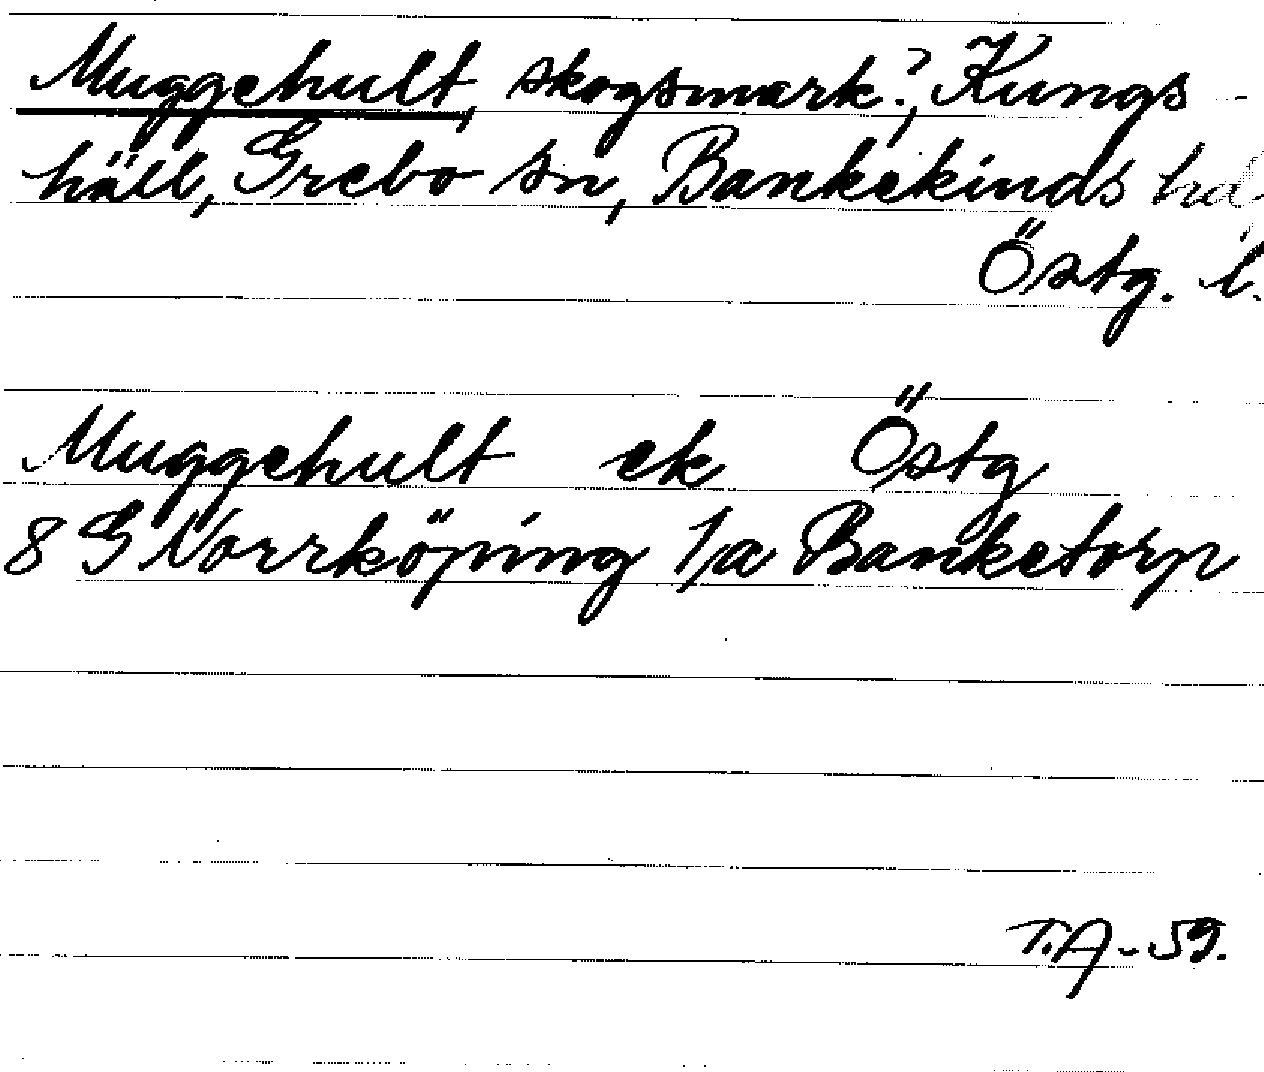 Muggehult, skogsmark?, Kungs-
häll, Grebo sn, Bankekinds hd,
Östg. l.
Muggehult ek Östg
8 G Norrköping 1/a Banketorp
T.A-59.